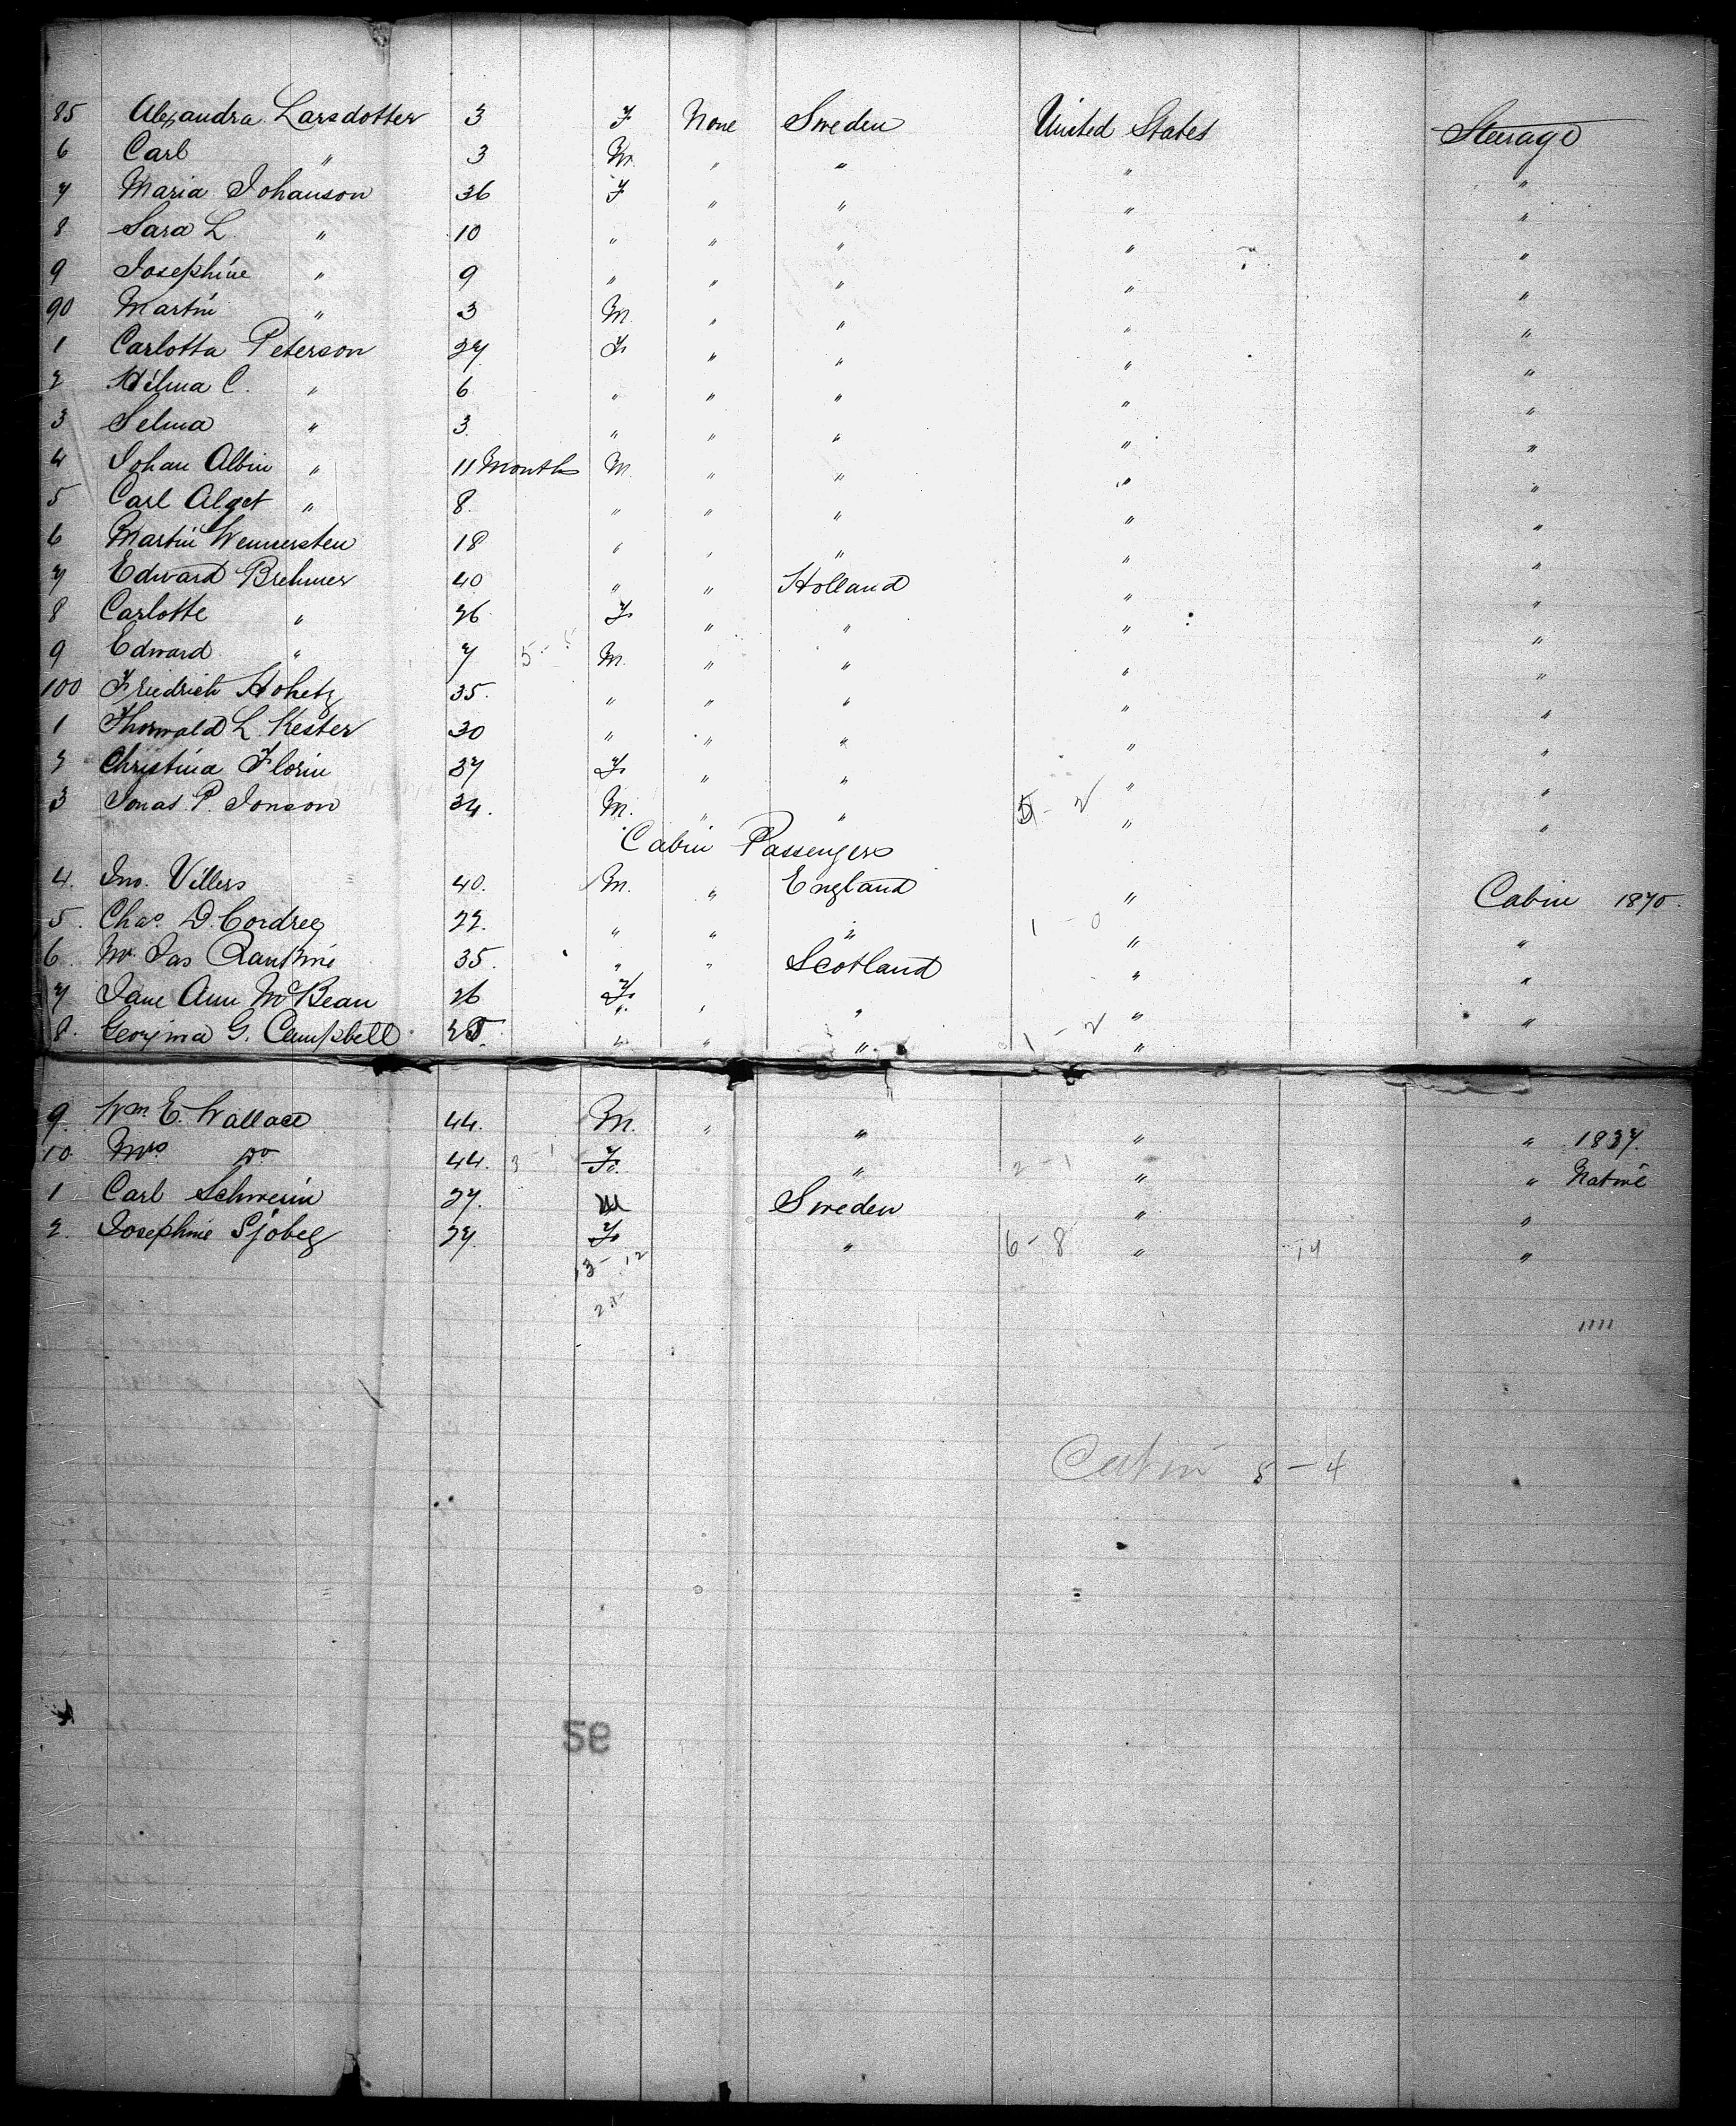 85 Alexandra Larsdotter 3 F None Sweden United States Steerage
6 Carl " 3 M " " " "
7 Maria Johanson 36 F " " " "
8 Sara L " 10 " " " " "
9 Josephine " 9 " " " " "
90 Martin " 3 M " " " "
1 Carlotta Peterson 27 F " " " "
2 Hilma C. " 6 " " " " "
3 Selma " 3 " " " " "
4 Johan Albin " 11 Months M " " " "
5 Carl " 8 " " " " "
6 Martin Wennersten 18 " " " " "
7 Edward Brehmer 40 " " Holland " "
8 Carlotte " 26 F " " " "
9 Edward " 7 M " " " "
100 Friedrich 35 " " " " "
1 Thorwald L. Kester 30 " " " " "
2 Christina Florin 37 F " " " "
3 Jonas P. Jonson 34 M. " " 5 - 2 " "
Cabin Passengers
4. Jno. Villers 40. M. " England " Cabin 1870.
5. Chas. D. 22. " " " 1 - 0 " "
6. Mr. Jas 35. " " Scotland " "
7 Jane Ann McBean 26 F. " " " "
8. Georgina G. Campbell 25. " " " 1 - 2 " "
9. Wm. E. Wallace 44. M. " " " " 1837.
10. Mrs do 44. 3 - 1 F. " 2 - 1 " " Native
1 Carl Schwerin 27. M Sweden " "
2. Josephine Sjobeg 27. F " 6 - 8 " 14 "
13 - 12
25
""
Cabin 8 - 4
95